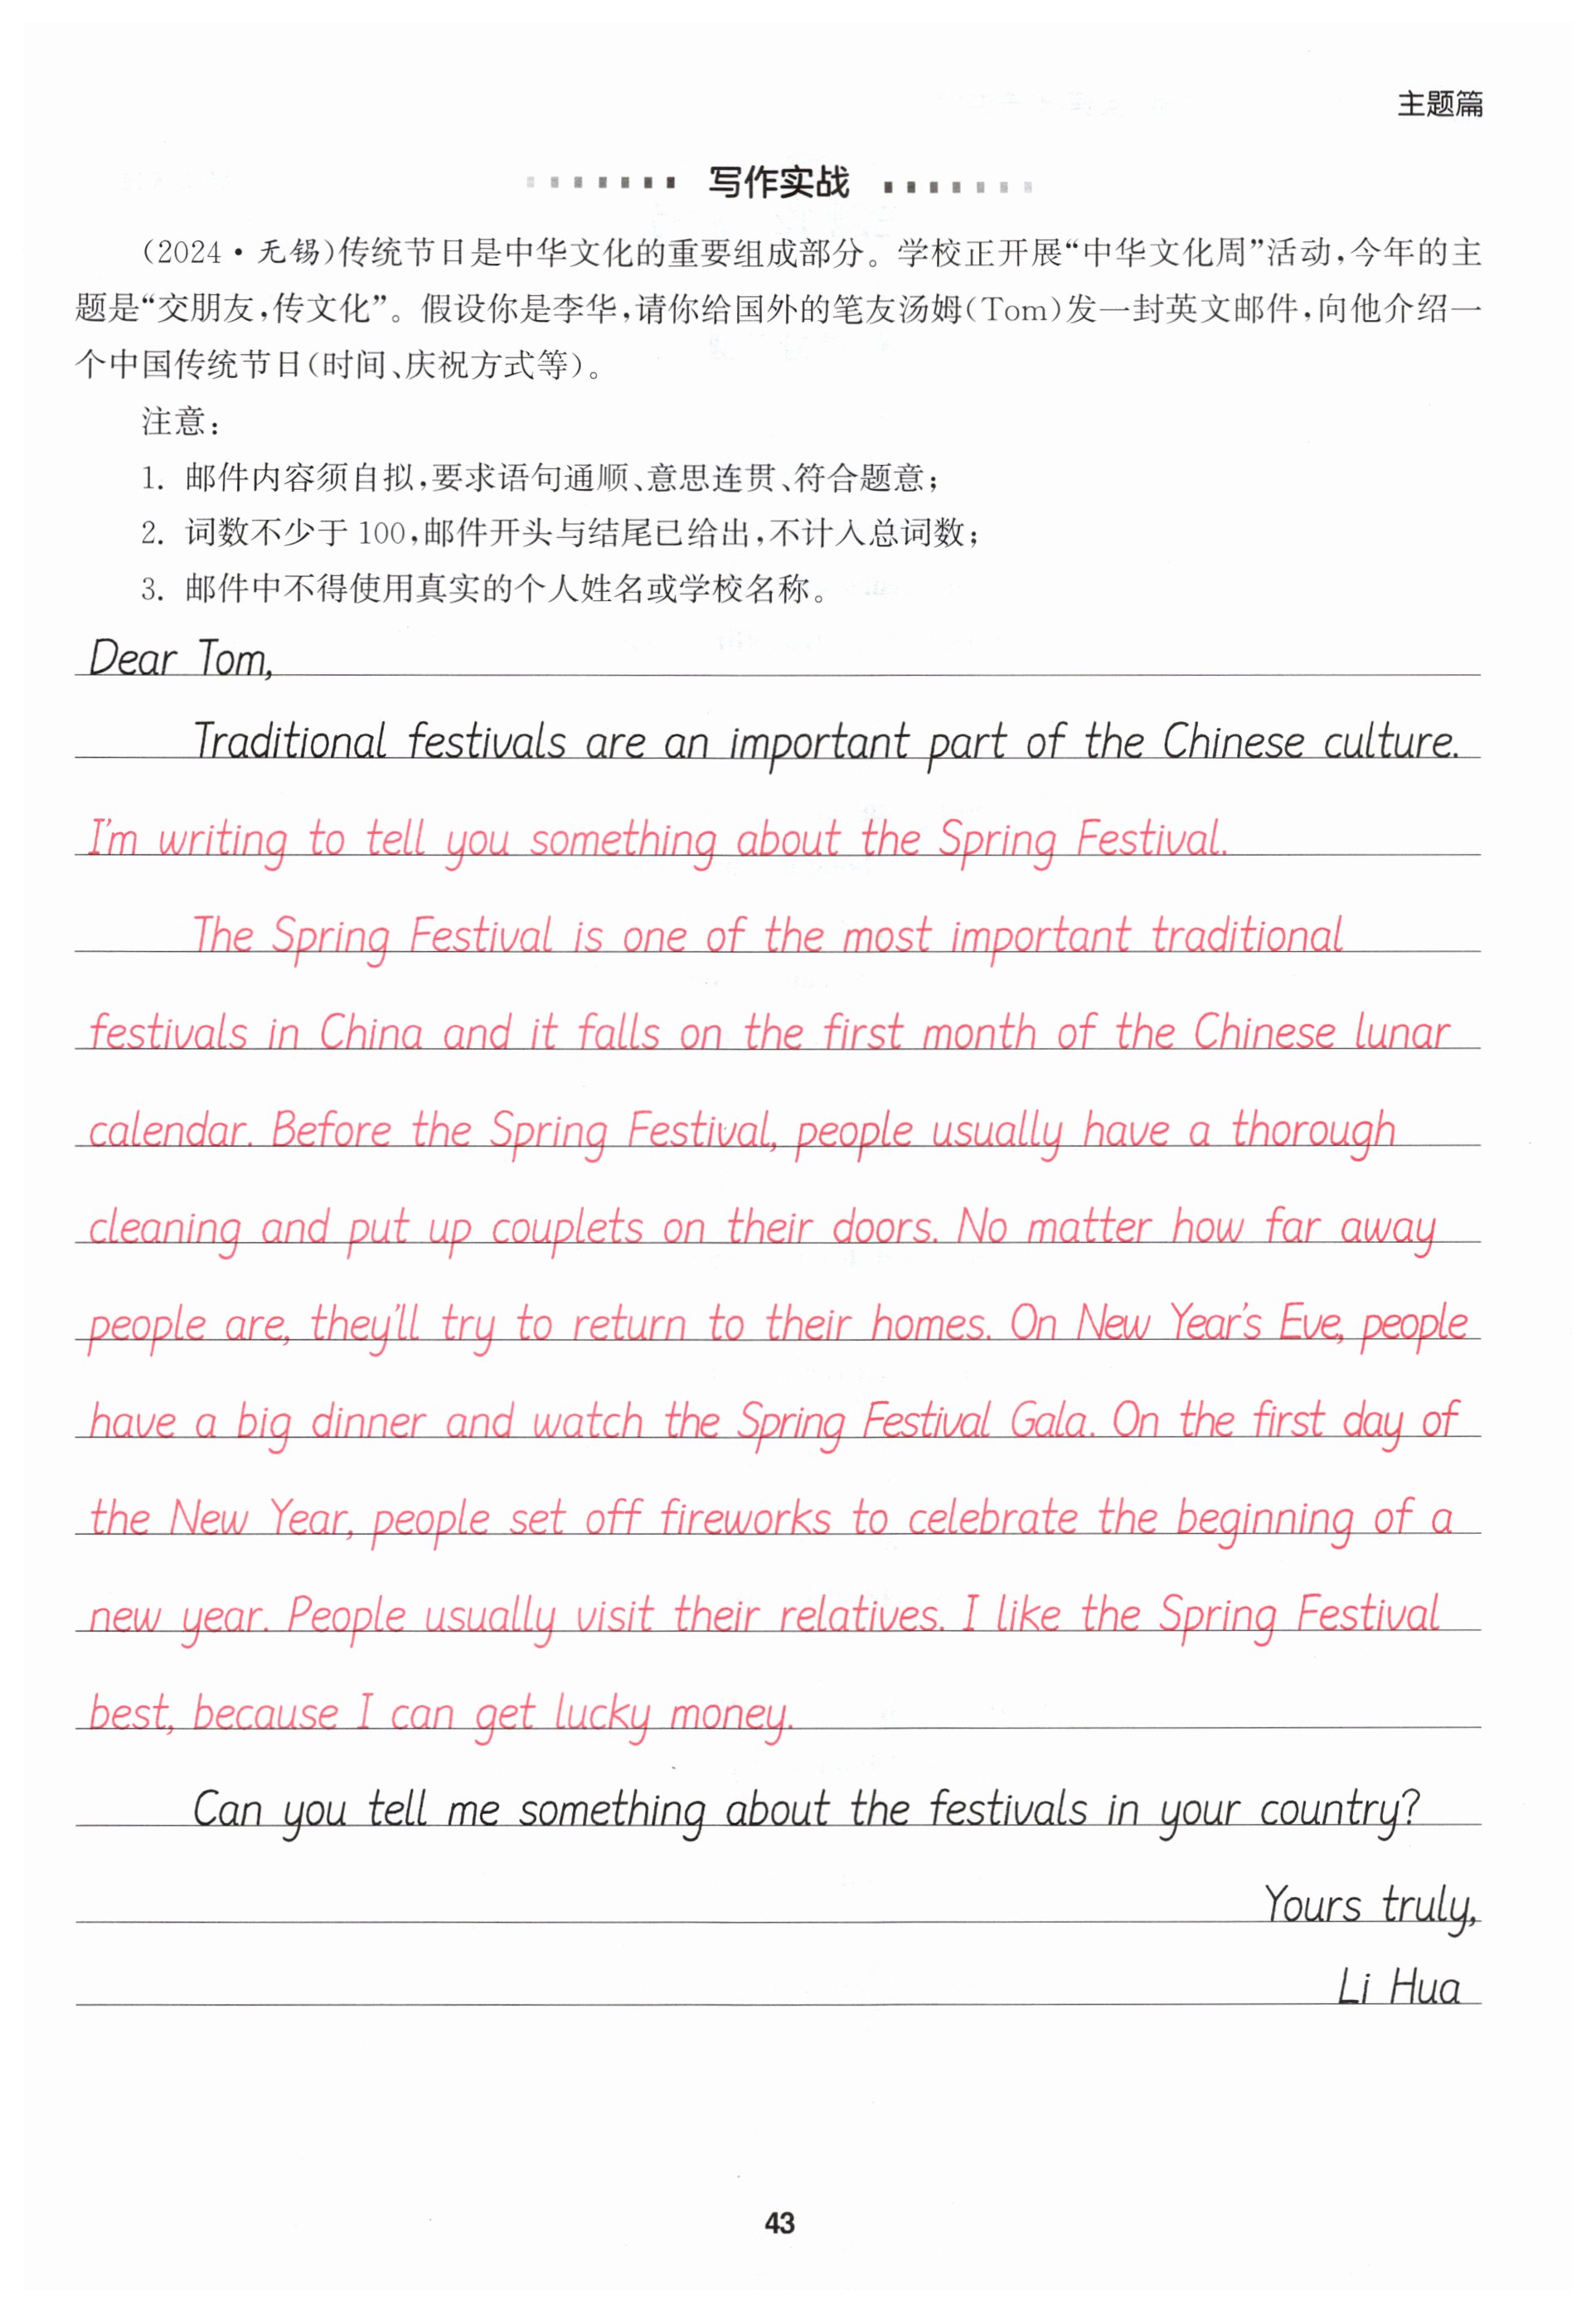 主题篇
写作实战
（2024·无锡）传统节日是中华文化的重要组成部分。学校正开展“中华文化周”活动，今年的主
题是“交朋友，传文化”。假设你是李华，请你给国外的笔友汤姆（Tom）发一封英文邮件，向他介绍一
个中国传统节日（时间、庆祝方式等）。
注意：
1. 邮件内容须自拟，要求语句通顺、意思连贯、符合题意；
2. 词数不少于100，邮件开头与结尾已给出，不计入总词数；
3. 邮件中不得使用真实的个人姓名或学校名称。
Dear Tom,
Traditional festivals are an important part of the Chinese culture.
I'm writing to tell you something about the Spring Festival.
The Spring Festival is one of the most important traditional
festivals in China and it falls on the first month of the Chinese lunar
calendar. Before the Spring Festival, people usually have a thorough
cleaning and put up couplets on their doors. No matter how far away
people are, they'll try to return to their homes. On New Year's Eve, people
have a big dinner and watch the Spring Festival Gala. On the first day of
the New Year, people set off fireworks to celebrate the beginning of a
new year. People usually visit their relatives. I like the Spring Festival
best, because I can get lucky money.
Can you tell me something about the festivals in your country?
Yours truly,
Li Hua
43